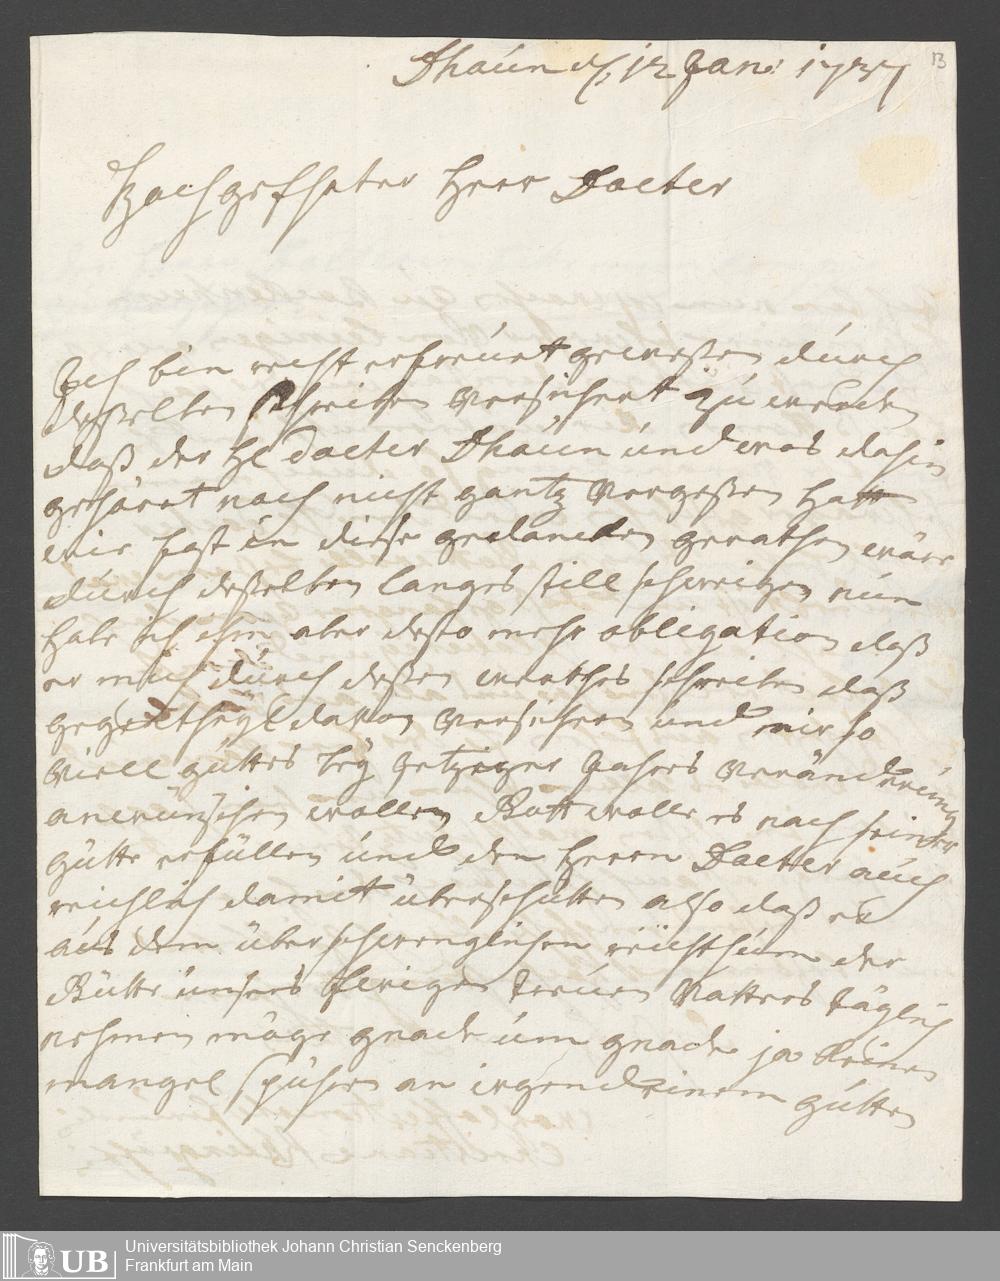 Dhaun d. 12 Jan: 1737
13
Hochgeschater Herr Docter
Ich bin recht erfreuet geweßen durch
deßelben schreiben versichert zu werden
daß der HE docter Dhaun und was dahin
gehöret noch nicht gantz vergeßen hatt
wir fast in diese gedancken gerathen wäre
durch deßelben langes still schweigen nun
habe ich ihm aber desto mehr obligation daß
er mich durch deßen werthes schreiben daß
gegentheyl davon versichern und mir so
viell guttes bey jetziger Jahres veränderung
anwünschen wollen Gott wolle es nach seiner
gütte erfüllen und den Herrn Docter auch
reichlich damit überschütten also daß er
aus dem überschwenglichen reichthum der
Gütte unsers heiligen treuen Vatters täglich
nehmen möge gnade um gnade ja keinen
mangel spühren an irgend einem gutten
Universitätsbibliothek Johann Christian Senckenberg
UB Frankfurt am Main